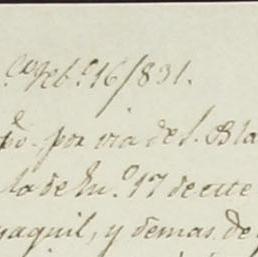 Feb.º 16/831.
por via de S. Bla
la de En.º 17 de este
yaquil, y demas de